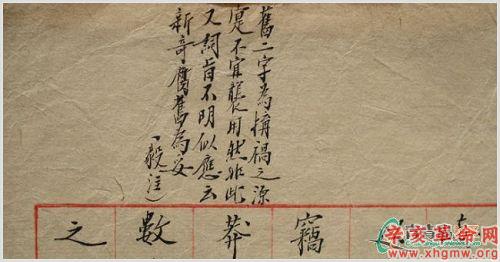 舊二字為搆禍之源
寔不宜襲用然非此
又詞旨不明似應云
新奇舊舊為妥
（毅注）
竊
莽
數
之
辛亥革命网
www.xhgmw.org